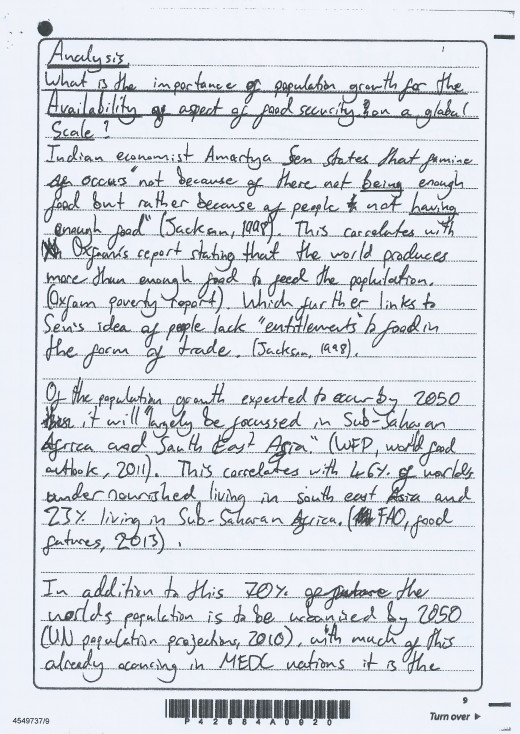 Analysis
What is the importance of population growth for the
Availability of aspect of food security on a global
Scale?
Indian economist Amartya Sen states that famine
occurs "not because of there not being enough
food but rather because of people not having
enough food" (Jackson, 1998). This correlates with
Oxfam's report stating that the world produces
more than enough food to feed the population.
(Oxfam poverty report). Which further links to
Sen's idea of people lack "entitlements" to food in
the form of trade. (Jackson, 1998).
Of the population growth expected to occur by 2050
it will "largely be focussed in Sub-Saharan
Africa and South East Asia." (WFP, world food
outlook, 2011). This correlates with 46% of worlds
undernourished living in south east Asia and
23% living in Sub-Saharan Africa. (FAO, food
futures, 2013).
In addition to this 70% of the
worlds population is to be urbanized by 2050
(UN population projections, 2010), with much of this
already occuring in MEDC nations it is the
9
4549737/9
P42884A0920
Turn over